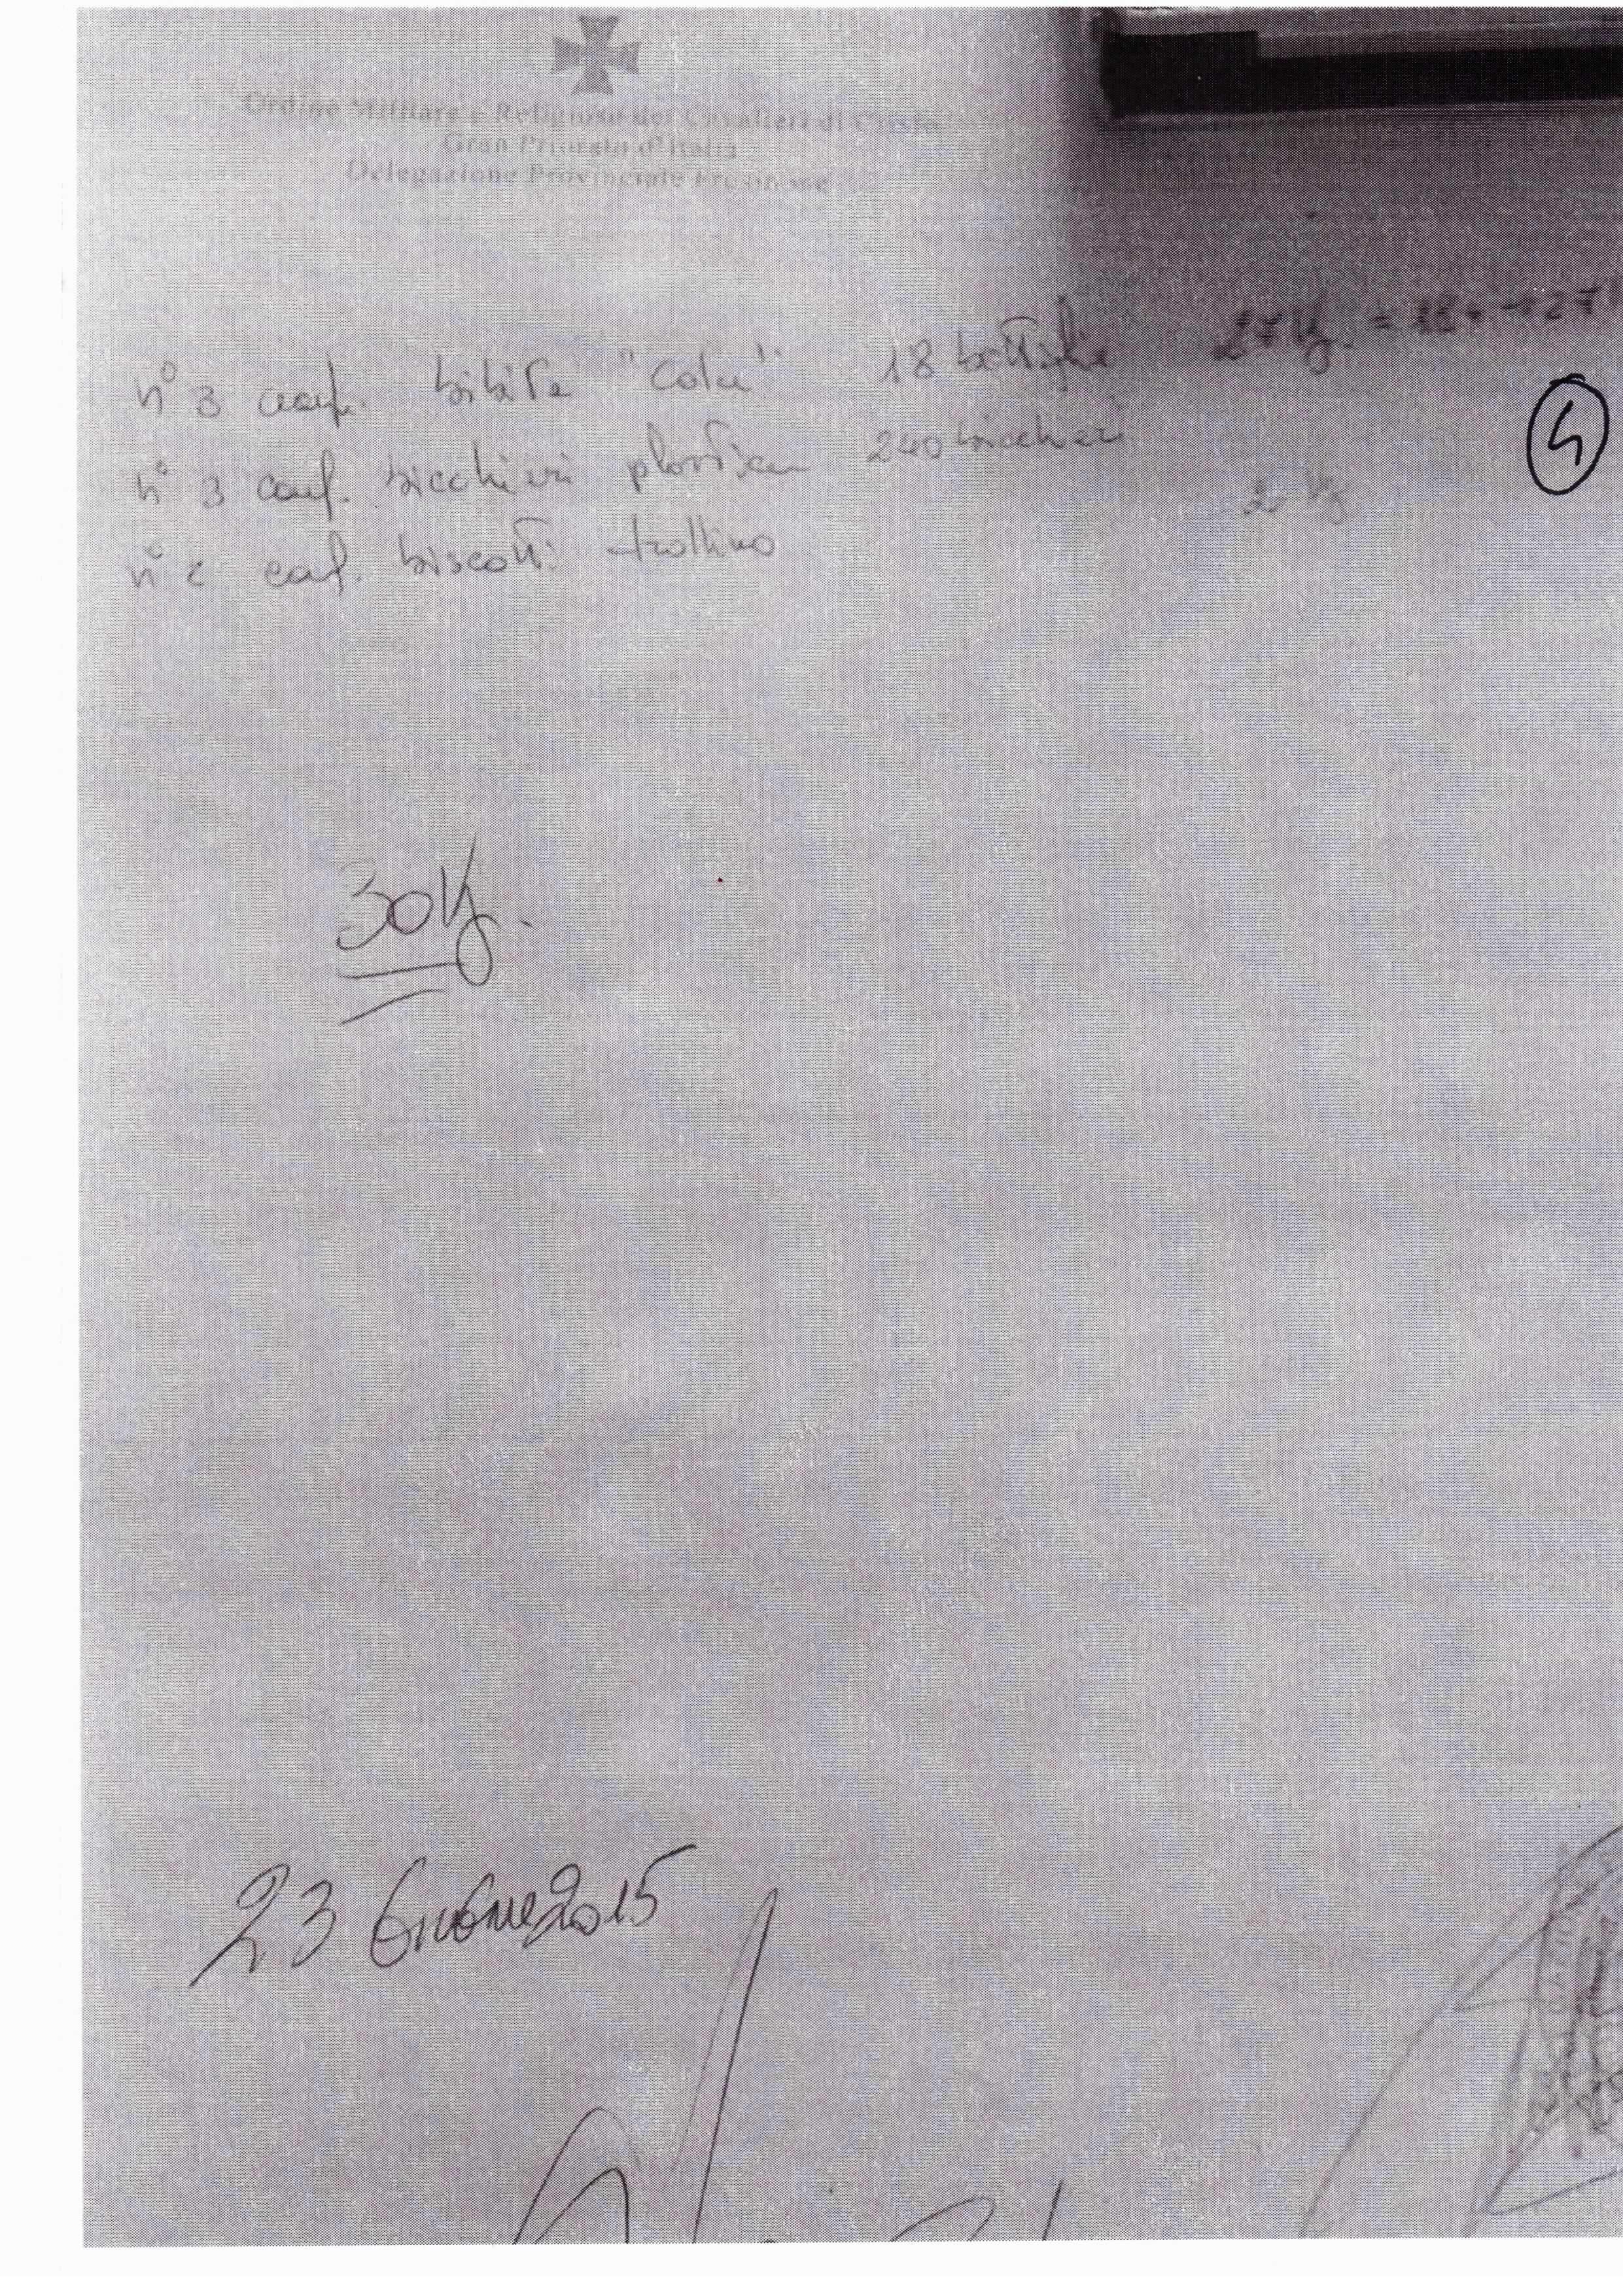 Ordine Militare e Religioso dei Cavalieri di Cristo
Gran Priorato d'Italia
Delegazione Provinciale Frosinone
n° 3 conf. bibite "Cola" 18 bottiglie 27 Kg. =
n° 3 conf. bicchieri plastica 240 bicchieri
n° conf. biscotti frollino 2 Kg
4
30 Kg.
23 Giugno 2015